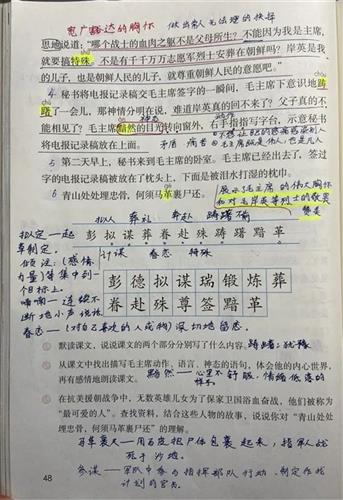 宽广豁达的胸怀 做出常人无法理的抉择
思地说道:“哪个战士的血肉之躯不是父母所生?不能因为我是主席,
就要搞特殊。不是有千千万万志愿军烈士安葬在朝鲜吗?岸英是我
的儿子,也是朝鲜人民的儿子,就尊重朝鲜人民的意愿吧。”
4 秘书将电报记录稿交毛主席签字的一瞬间,毛主席下意识地踌
躇了一会儿,那神情分明在说,难道岸英真的回不来了?父子真的不
能相见了?毛主席黯然的目光转向窗外,右手指指写字台,示意秘书
将电报记录稿放在上面。
矛盾 痛苦
5 第二天早上,秘书来到毛主席的卧室。毛主席已经出去了,签过
字的电报记录稿被放在了枕头上,下面是被泪水打湿的枕巾。
6 青山处处埋忠骨,何须马革裹尸还。
展示毛主席的伟大胸怀
和对毛岸英等烈士的敬意
赞美
拟人 葬礼 奔赴 踌躇不前
彭拟谋葬眷赴殊踌躇黯革
计谋 眷恋 特殊
彭德拟谋瑞锻炼葬
眷赴殊尊签黯革
拟定一起
草制定。
默读课文,说说课文的两个部分分别写了什么内容。 踌躇:犹豫
从课文中找出描写毛主席动作、语言、神态的语句,体会他的内心世界,
再有感情地朗读课文。 黯然—心里不舒服、情绪低落的样子
在抗美援朝战争中,无数英雄儿女为了保家卫国浴血奋战,他们被称为
“最可爱的人”。查找资料,结合这些人物的故事,说说你对“青山处处
埋忠骨,何须马革裹尸还”的理解。
马革裹尸—用马皮把尸体包裹起来,指军人战
死于沙场。
48
参谋—军队中参与指挥部队行动、制定作战
计划的官员。